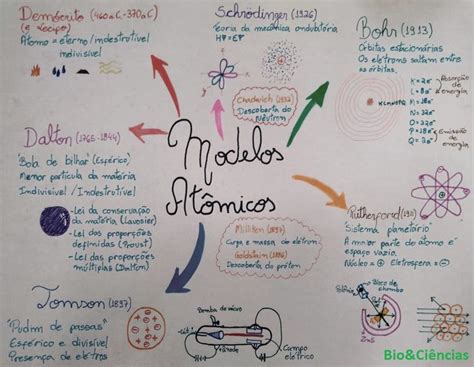 Demócrito (460a.C-370a.C)
(e Leucipo)
Átomo = eterno/indestrutível
indivisível
Schrödinger (1926)
Teoria da mecânica ondulatória
Bohr (1913)
Órbitas estacionárias
Os elétrons saltam entre
as órbitas.
K = 2e⁻
L = 8e⁻
M = 18e⁻
N = 32e⁻
O = 32e⁻
P = 18e⁻
Q = 8e⁻
Absorção
de energia
Emissão
de energia
KLMNOPQ
Chadwick (1932)
Descoberta do
Nêutron
Dalton (1766-1844)
"Bola de bilhar" (Esférico)
Menor partícula da matéria
Indivisível/Indestrutível
-Lei da conservação
da matéria (Lavoisier)
-Lei das proporções
definidas (Proust)
-Lei das proporções
múltiplas (Dalton)
Modelos
Atômicos
Rutherford (1911)
Sistema planetário
A maior parte do átomo é
espaço vazio.
Núcleo = + Eletrosfera = -
Millikan (1897)
Carga e massa do elétron
Goldstein (1886)
Descoberta do próton
Tomson (1897)
"Pudim de passas"
Esférico e divisível
Presença de eletros
Bomba de vácuo
Campo
elétrico
Polônio
Bloco de
chumbo
ZnS
Bio&Ciências